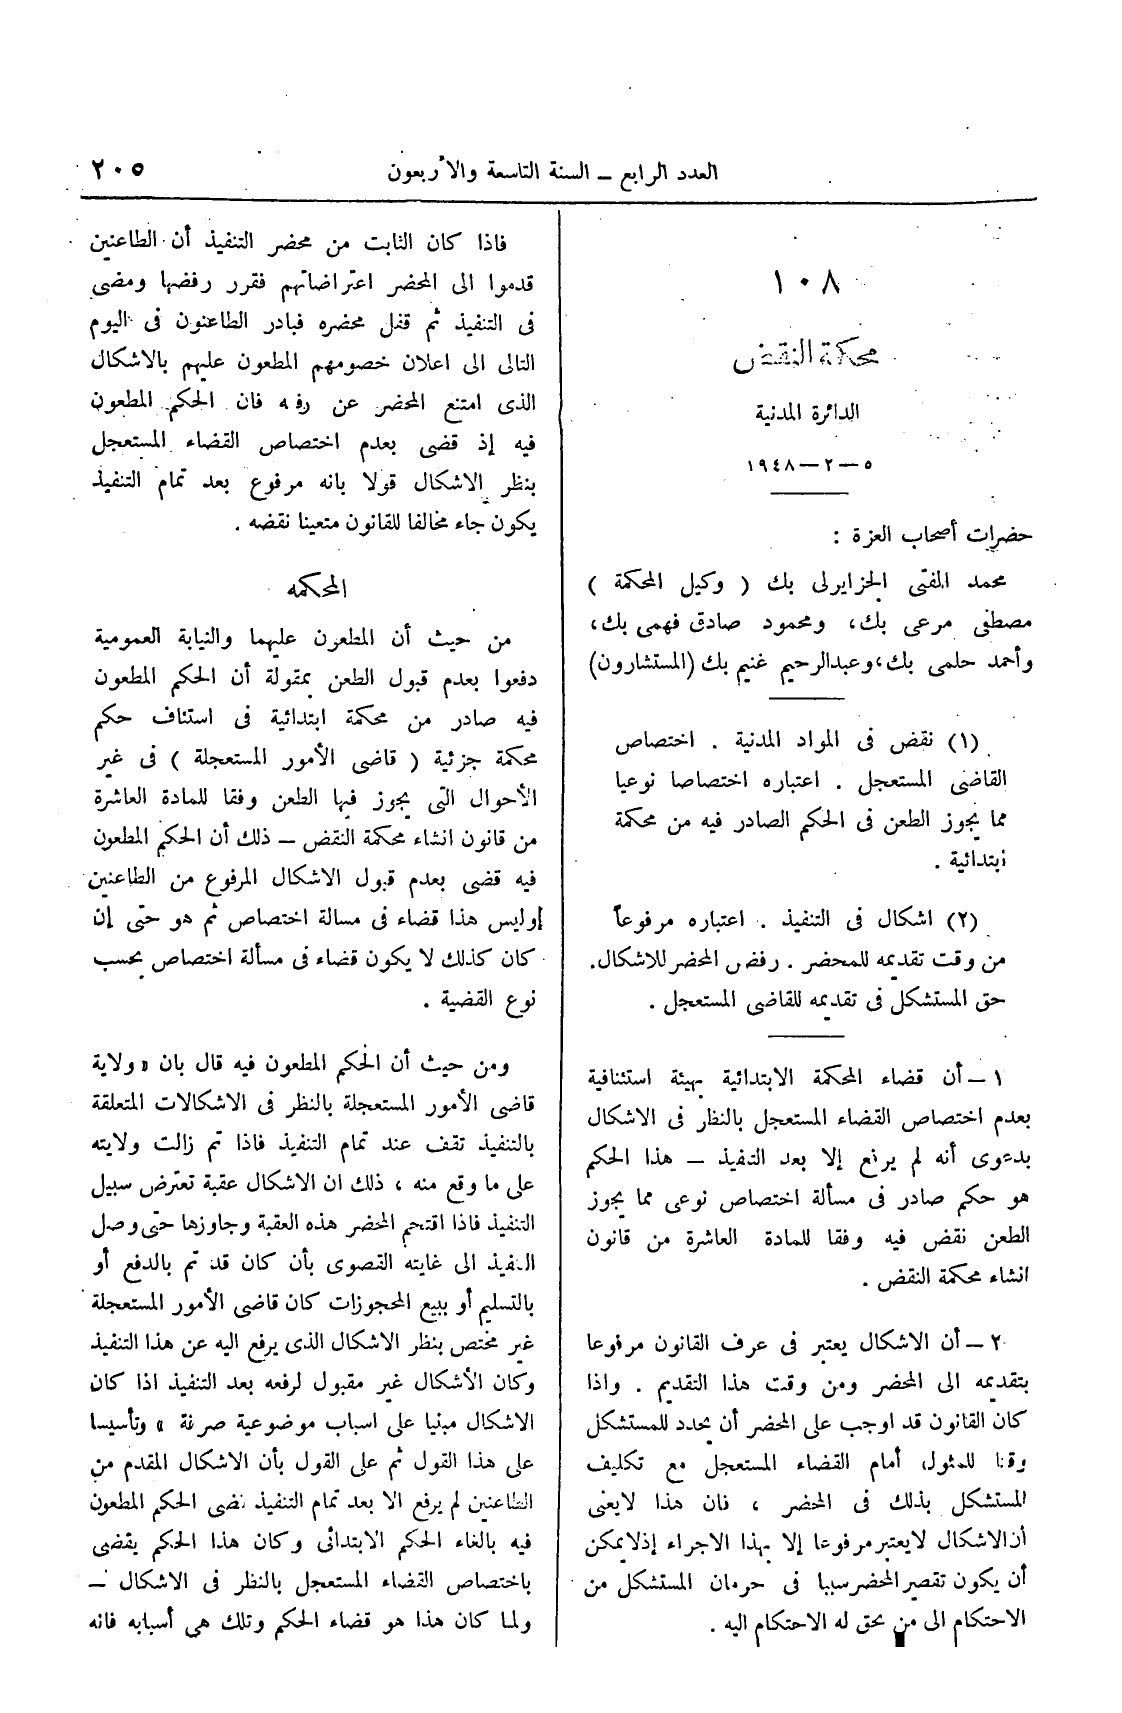 العدد الرابع – السنة التاسعة والأربعون
٢٠٥
١٠٨
محكمة النقض
الدائرة المدنية
٥ – ٢ – ١٩٤٨
حضرات أصحاب العزة :
محمد المفتى الجزايرلى بك ( وكيل المحكمة )
مصطفى مرعى بك، ومحمود صادق فهمى بك،
وأحمد حلمى بك، وعبدالرحيم غنيم بك (المستشارون)
(١) نقض فى المواد المدنية . اختصاص
القاضى المستعجل . اعتباره اختصاصا نوعيا
مما يجوز الطعن فى الحكم الصادر فيه من محكمة
ابتدائية .
(٢) اشكال فى التنفيذ . اعتباره مرفوعاً
من وقت تقديمه للمحضر . رفض المحضر للاشكال.
حق المستشكل فى تقديمه للقاضى المستعجل .
١ – أن قضاء المحكمة الابتدائية بهيئة استئنافية
بعدم اختصاص القضاء المستعجل بالنظر فى الاشكال
بدعوى أنه لم يرفع إلا بعد التنفيذ – هذا الحكم
هو حكم صادر فى مسألة اختصاص نوعى مما يجوز
الطعن نقض فيه وفقا للمادة العاشرة من قانون
انشاء محكمة النقض .
٢ – أن الاشكال يعتبر فى عرف القانون مرفوعا
بتقديمه الى المحضر ومن وقت هذا التقديم . واذا
كان القانون قد اوجب على المحضر أن يحدد للمستشكل
وقتا للمثول أمام القضاء المستعجل مع تكليف
المستشكل بذلك فى المحضر ، فان هذا لايعنى
أن الاشكال لايعتبر مرفوعا إلا بهذا الاجراء إذلايمكن
أن يكون تقصير المحضر سببا فى حرمان المستشكل من
الاحتكام الى من يحق له الاحتكام اليه .
فاذا كان الثابت من محضر التنفيذ أن الطاعنين
قدموا الى المحضر اعتراضاتهم فقرر رفضها ومضى
فى التنفيذ ثم قفل محضره فبادر الطاعنون فى اليوم
التالى الى اعلان خصومهم المطعون عليهم بالاشكال
الذى امتنع المحضر عن رفعه فان الحكم المطعون
فيه إذ قضى بعدم اختصاص القضاء المستعجل
بنظر الاشكال قولا بانه مرفوع بعد تمام التنفيذ
يكون جاء مخالفا للقانون متعينا نقضه .
المحكمه
من حيث أن المطعون عليهما والنيابة العمومية
دفعوا بعدم قبول الطعن بمقولة أن الحكم المطعون
فيه صادر من محكمة ابتدائية فى استئناف حكم
محكمة جزئية ( قاضى الأمور المستعجلة ) فى غير
الأحوال التى يجوز فيها الطعن وفقا للمادة العاشرة
من قانون انشاء محكمة النقض – ذلك أن الحكم المطعون
فيه قضى بعدم قبول الاشكال المرفوع من الطاعنين
وليس هذا قضاء فى مسالة اختصاص ثم هو حتى إن
كان كذلك لا يكون قضاء فى مسألة اختصاص بحسب
نوع القضية .
ومن حيث أن الحكم المطعون فيه قال بان « ولاية
قاضى الأمور المستعجلة بالنظر فى الاشكالات المتعلقة
بالتنفيذ تقف عند تمام التنفيذ فاذا تم زالت ولايته
على ما وقع منه ، ذلك ان الاشكال عقبة تعترض سبيل
التنفيذ فاذا اقتحم المحضر هذه العقبة وجاوزها حتى وصل
التنفيذ الى غايته القصوى بأن كان قد تم بالدفع أو
بالتسليم أو ببيع المحجوزات كان قاضى الأمور المستعجلة
غير مختص بنظر الاشكال الذى يرفع اليه عن هذا التنفيذ
وكان الأشكال غير مقبول لرفعه بعد التنفيذ اذا كان
الاشكال مبنيا على اسباب موضوعية صرفة » وتأسيسا
على هذا القول ثم على القول بأن الاشكال المقدم من
الطاعنين لم يرفع الا بعد تمام التنفيذ قضى الحكم المطعون
فيه بالغاء الحكم الابتدائى وكان هذا الحكم يقضى
باختصاص القضاء المستعجل بالنظر فى الاشكال –
ولما كان هذا هو قضاء الحكم وتلك هى أسبابه فانه